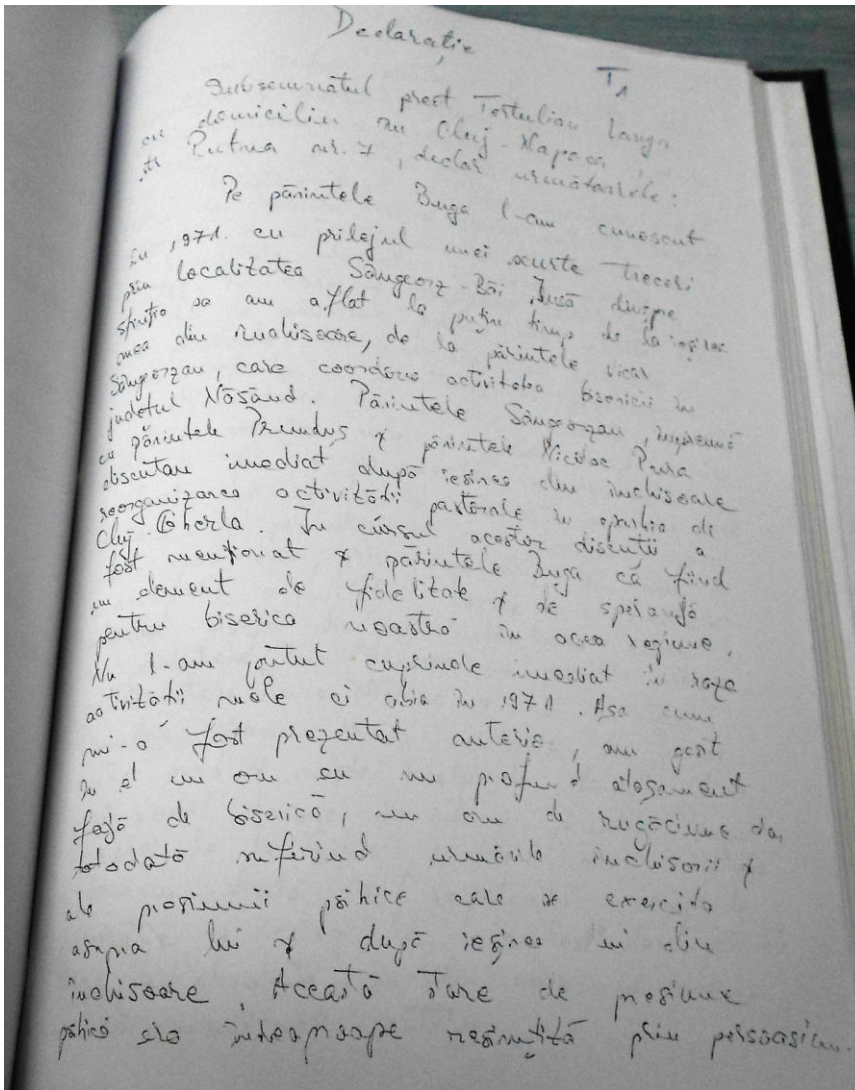 Declarație
T1
Subsemnatul preot Tertulian Langa
cu domiciliu în Cluj-Napoca,
str Putna nr. 7, declar următoarele:
Pe părintele Buga l-am cunoscut
în 1971. cu prilejul unei scurte treceri
prin localitatea Sângeorz-Băi. Însă despre
sfinția sa am aflat la puțin timp de la ieșirea
mea din închisoare, de la părintele vicar
Sângeorzan, care coordona activitatea bisericii în
județul Năsăud. Părintele Sângeorzan, împreună
cu părintele Prunduș & părintele Nicolae Pura
discutau imediat după ieșirea din închisoare
reorganizarea activității pastorale în eparhia de
Cluj-Gherla. În cursul acestor discuții a
fost menționat & părintele Buga ca fiind
un element de fidelitate & de speranță
pentru biserica noastră în acea regiune.
Nu l-am putut cuprinde imediat în raza
activității mele ci abia în 1971. Așa cum
mi-a fost prezentat anterior, am găsit
în el un om cu un profund atașament
față de biserică, un om de rugăciune dar
totodată suferind urmările închisorii &
ale presiunii psihice care se exercita
asupra lui & după ieșirea lui din
închisoare. Această stare de presiune
psihică era îndeaproape resimțită prin